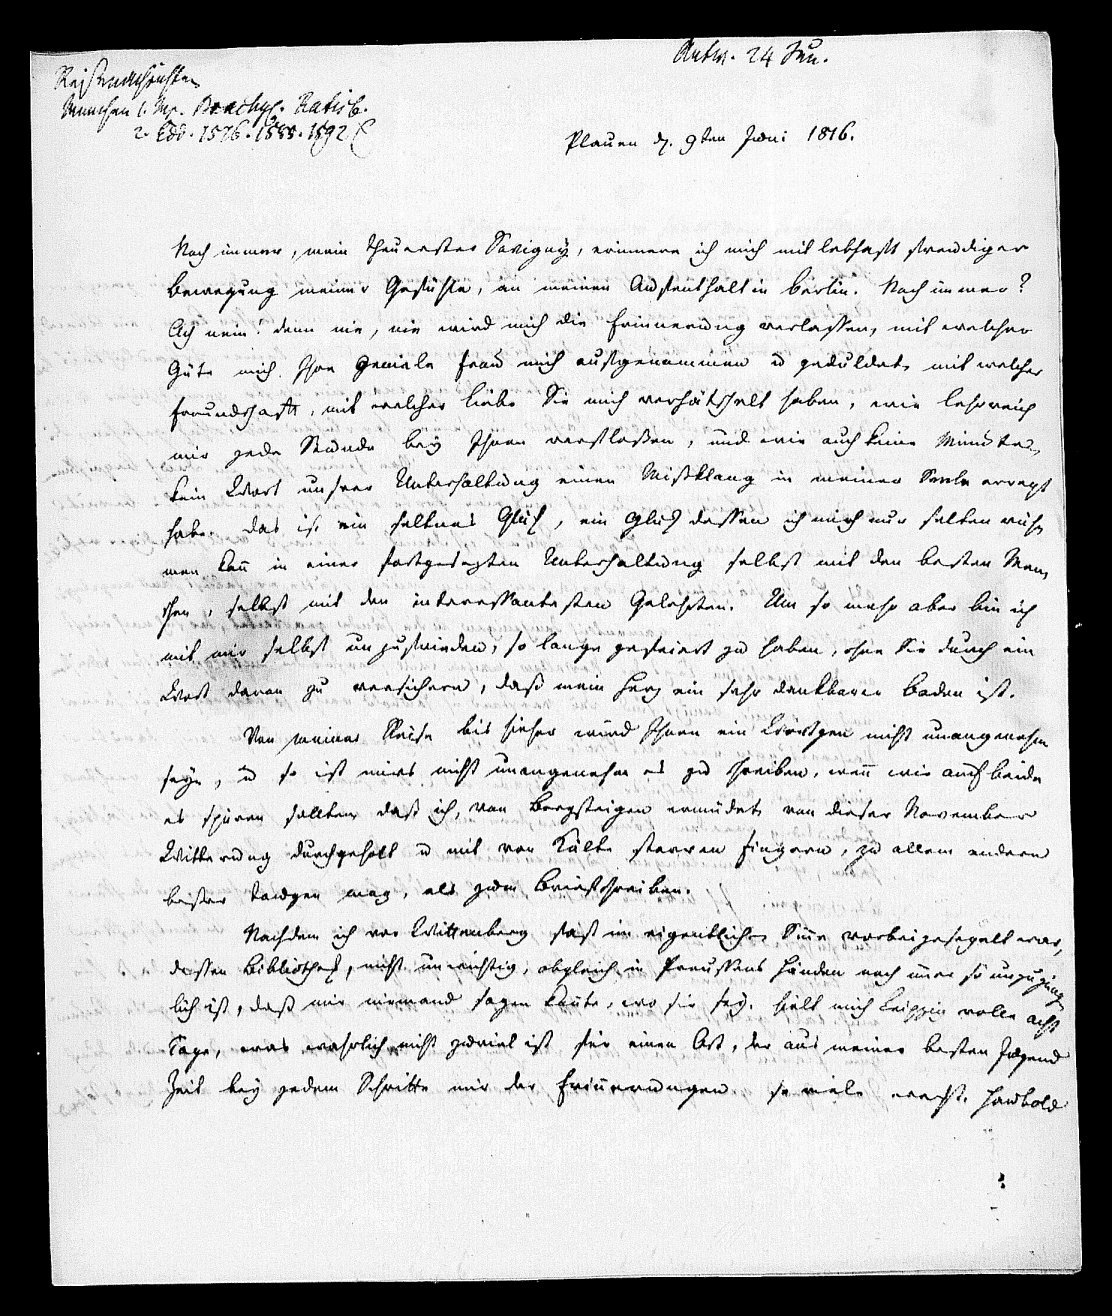 Antw. 24 Jun.
Reisenachrichten
München 1. Mp. Brachyl. Ratisb.
2. Edd. 1576. 1588. 1592
Plauen d. 9ten Juni 1816.
Noch immer, mein theuerster Savigny, erinnere ich mich mit lebhaft freudiger
Bewegung meiner Gefühle, an meinen Aufenthalt in Berlin. Noch immer?
Ach nein! denn nie, nie wird mich die Erinnerung verlassen, mit welcher
Güte mich Ihre geniale Frau mich aufgenommen u geduldet, mit welcher
Freundschaft, mit welcher Liebe Sie mich verhätschelt haben, wie lehrreich
mir jede Stunde bey Ihnen verflossen, und wie auch keine Minute,
kein Wort unsrer Unterhaltung einen Mißklang in meiner Seele erregt
habe. das ist ein seltnes Glück, ein Glück dessen ich mich nur selten rüh-
men kan in einer fortgesezten Unterhaltung selbst mit den besten Men-
schen, selbst mit den interessantesten Gelehrten. Um so mehr aber bin ich
mit mir selbst unzufrieden, so lange gefeiert zu haben, ohne Sie durch ein
Wort davon zu versichern, daß mein Herz ein sehr dankbarer Boden ist.
Von meiner Reise bis hieher wird Ihnen ein Wörtgen nicht unangenehm
seyn, u so ist mirs nicht unangenehm es zu schreiben, wenn wir auch beide
es spüren sollten, daß ich, von Bergsteigen ermüdet, von dieser November
Witterung durchgeholt u mit von Kälte starren Fingern, zu allem andern
besser taugen mag, als zum Briefschreiben.
Nachdem ich vor Wittenberg fast im eigentlichen Sinn vorbeigesegelt war,
dessen Bibliothek, nicht unwichtig, obgleich in Preussens Händen noch imer so unzugäng-
lich ist, daß mir niemand sagen konte, wo sie sey, hielt mich Leipzig volle acht
Tage, was wahrlich nicht zuviel ist für einen Ort, der aus meiner besten Jugend
Zeit bey jedem Schritte mir der Erinnerungen so viele weckt. Haubold